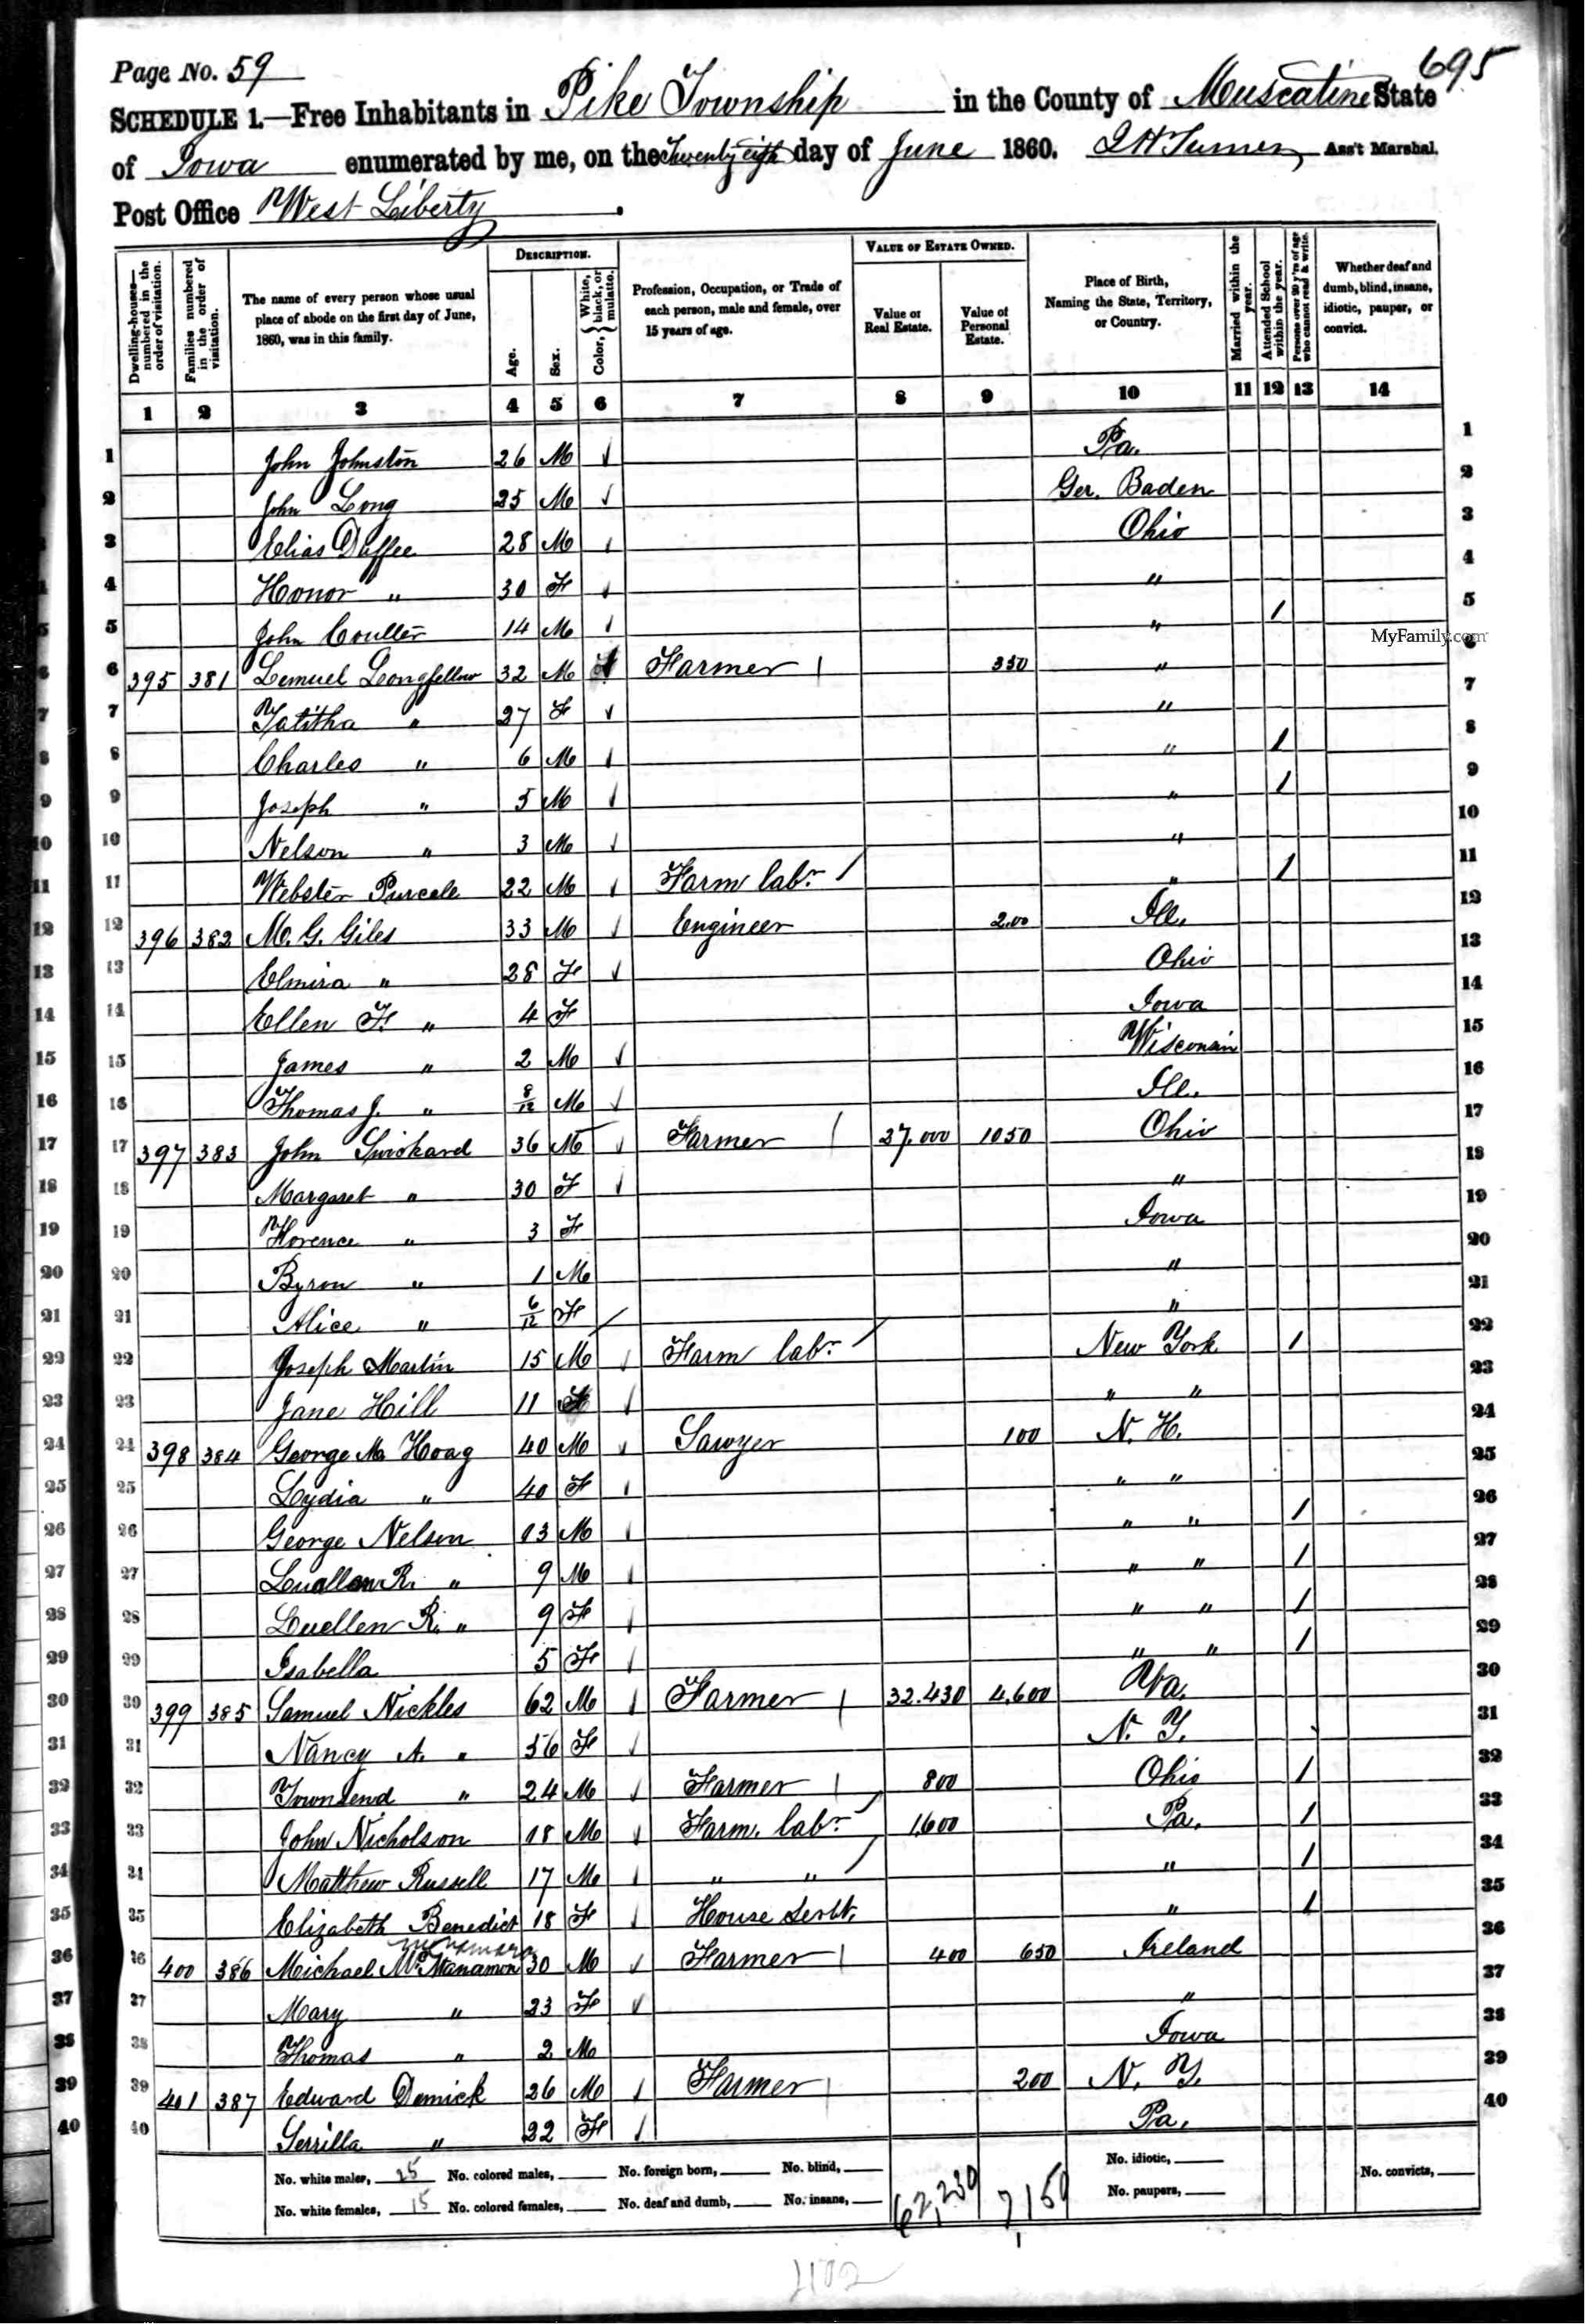 Page No. 59
695
SCHEDULE 1.—Free Inhabitants in Pike Township in the County of Muscatine State
of Iowa enumerated by me, on the day of June 1860. Ass't Marshal.
Post Office West Liberty.
Dwelling-houses—numbered in the order of visitation.
Families numbered in the order of visitation.
The name of every person whose usual place of abode on the first day of June, 1860, was in this family.
DESCRIPTION.
Age.
Sex.
Color, { White, black, or mulatto.
Profession, Occupation, or Trade of each person, male and female, over 15 years of age.
VALUE OF ESTATE OWNED.
Value of Real Estate.
Value of Personal Estate.
Place of Birth, Naming the State, Territory, or Country.
Married within the year.
Attended School within the year.
Persons over 20 y'rs of age who cannot read & write.
Whether deaf and dumb, blind, insane, idiotic, pauper, or convict.
1 2 3 4 5 6 7 8 9 10 11 12 13 14
1 John Johnston 26 M Pa. 1
2 John Long 25 M Ger. Baden 2
3 Elias Duffee 28 M Ohio 3
4 Honor " 30 F " 4
5 John Coulter 14 M " / 5
MyFamily.com
6 395 381 Lemuel Longfellow 32 M Farmer 350 " 6
7 Talitha " 27 F " 7
8 Charles " 6 M " / 8
9 Joseph " 5 M " / 9
10 Nelson " 3 M " 10
11 Webster Purcell 22 M Farm labr " / 11
12 396 382 M. G. Giles 33 M Engineer 200 Ill. 12
13 Elmira " 28 F Ohio 13
14 Ellen F. " 4 F Iowa 14
15 James " 2 M Wisconsin 15
16 Thomas J. " 8/12 M Ill. 16
17 397 383 John Swickard 36 M Farmer 27.000 1050 Ohio 17
18 Margaret " 30 F " 18
19 Florence " 3 F Iowa 19
20 Byron " 1 M " 20
21 Alice " 6/12 F " 21
22 Joseph Martin 15 M Farm labr New York / 22
23 Jane Hill 11 F " " 23
24 398 384 George M. Hoag 40 M Sawyer 100 N. H. 24
25 Lydia " 40 F " " 25
26 George Nelson 13 M " " / 26
27 R. " 9 M " " / 27
28 Luellen R. " 9 F " " / 28
29 Isabella 5 F " " / 29
30 399 385 Samuel Nickles 62 M Farmer 32.430 4,600 Va. 30
31 Nancy A. " 56 F N. Y. 31
32 Townsend " 24 M Farmer 800 Ohio / 32
33 John Nicholson 18 M Farm. labr 1,600 Pa. / 33
34 Matthew Russell 17 M " " " / 34
35 Elizabeth Benedict 18 F House Servt. " / 35
McNamara
36 400 386 Michael McManamon 30 M Farmer 400 650 Ireland 36
37 Mary " 23 F " 37
38 Thomas " 2 M Iowa 38
39 401 387 Edward Demick 26 M Farmer 200 N. Y. 39
40 Serrilla " 22 F Pa. 40
No. white males, 25 No. colored males, No. foreign born, No. blind, No. idiotic, No. convicts,
No. white females, 15 No. colored females, No. deaf and dumb, No. insane, 62,230 7,150 No. paupers,
1102